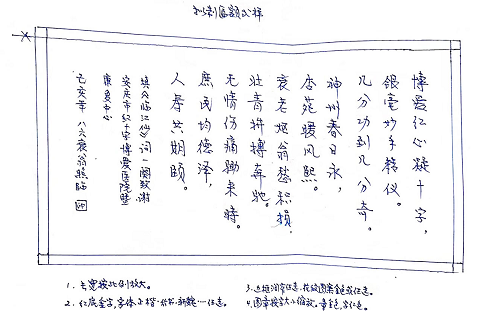 拟制匾额式样
博爱红心凝十字，
银毫妙手仪。
几分功到几分奇。
神州春日永，
杏苑暖风熙。
衰老翁愁积损，
壮青拼搏奔驰。
无情伤痛锄来时。
庶民均德泽，
人寿共期颐。
填《临江仙》词一阕致谢
安庆市红十字博爱医院暨
康复中心
乙亥年 八六衰翁 印
1. 长宽按比例放大。
2. 红底金字，字体正楷、行书、新魏…任选。
3. 边框任选，花纹图案金色或任选。
4. 图章按字大小缩放，黄色，字红色。